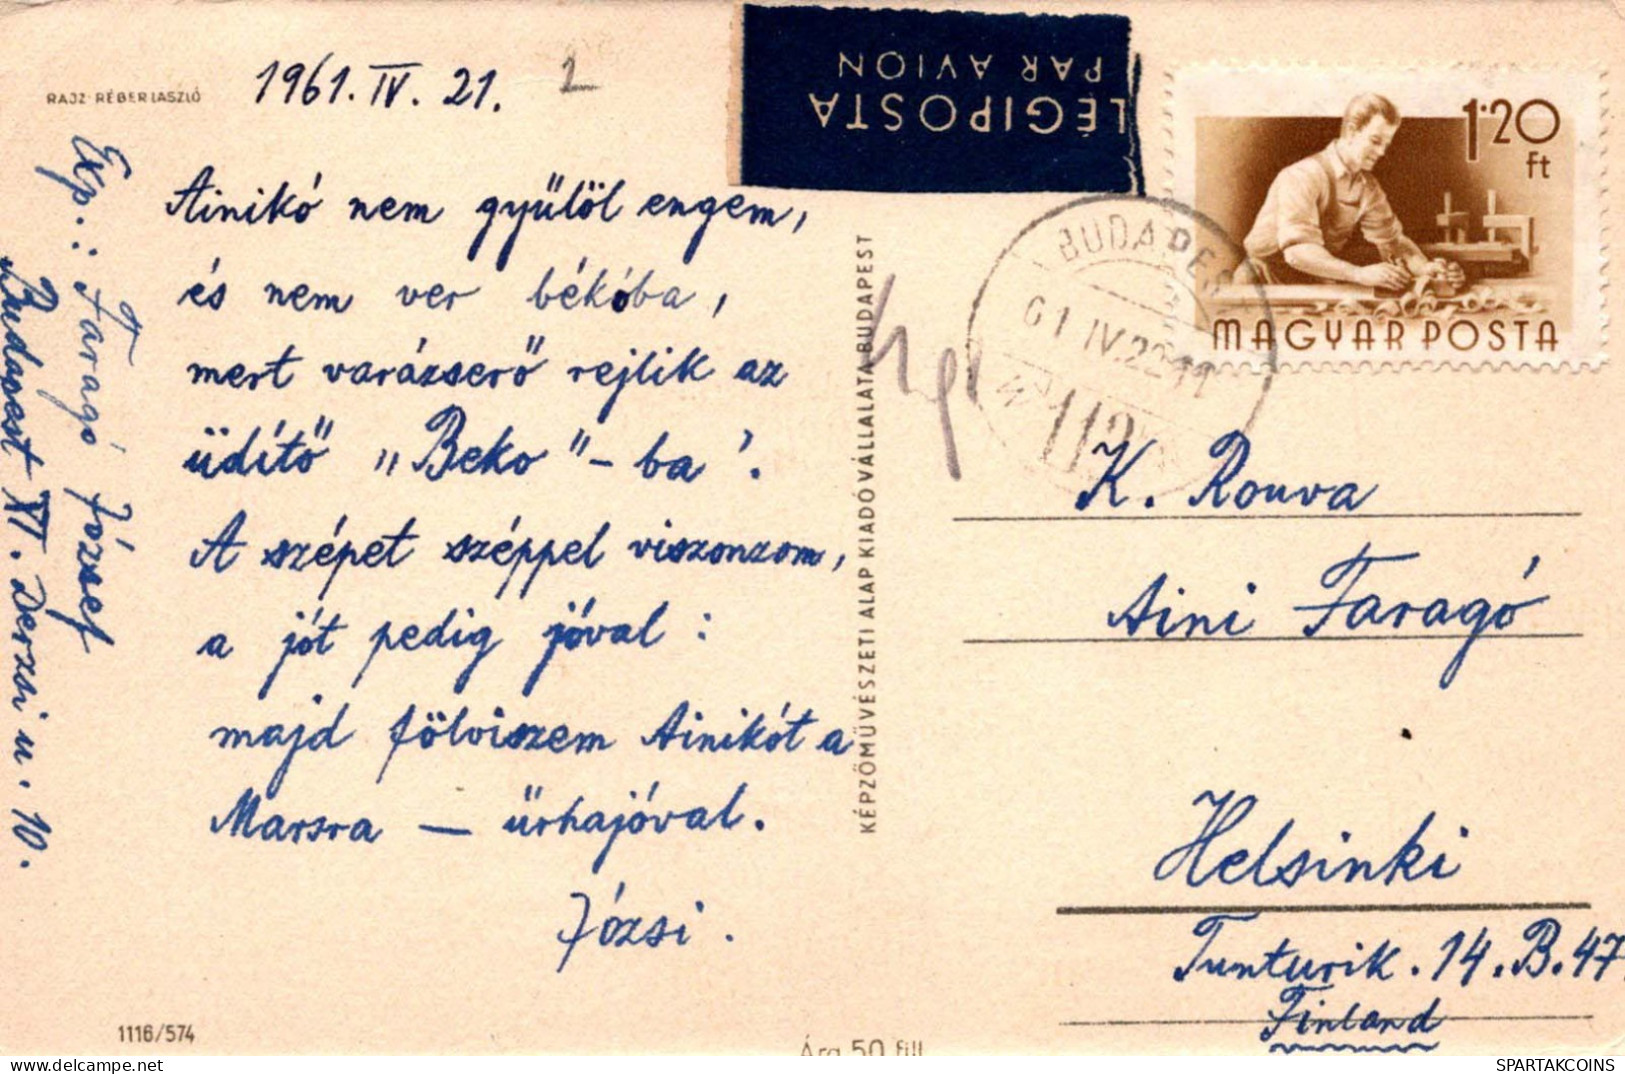 RAJZ: RÉBER LÁSZLÓ
1961. IV. 21.
2
Ainikó nem gyűlöl engem,
és nem ver békóba,
mert varázserő rejlik az
üdítő „Beko"-ba'.
A szépet széppel viszonzom,
a jót pedig jóval:
majd fölviszem Ainikót a
Marsra — űrhajóval.
Józsi.
Exp.: Faragó József
Budapest XI. Derzsi u. 10.
1116/574
Ára 50 fill
KÉPZŐMŰVÉSZETI ALAP KIADÓVÁLLALATA BUDAPEST
LÉGIPOSTA
PAR AVION
1.20
ft
MAGYAR POSTA
BUDAPEST
61 IV. 22-11
112
K. Rouva
Aini Faragó
Helsinki
Tunturik. 14. B. 47
Finland
SPARTAKCOINS